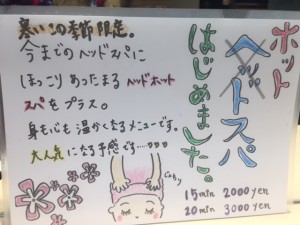 ホット
ヘッドスパ
はじめました。
寒いこの季節限定。
今までのヘッドスパに
ほっこりあったまるヘッドホット
スパをプラス。
身も心も温かくなるメニューです。
大人気になる予感です…
15min 2000yen
20min 3000yen